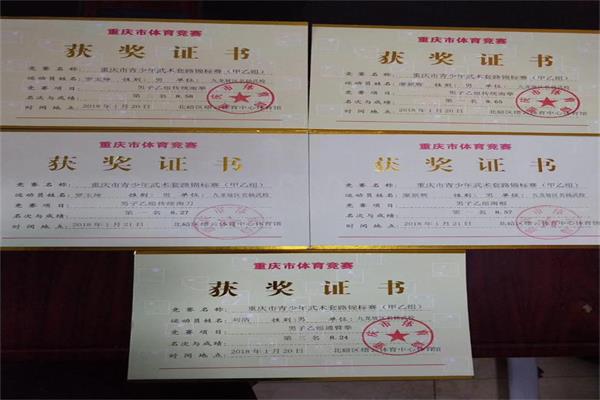 重庆市体育竞赛
获奖证书
竞赛名称: 重庆市青少年武术套路锦标赛（甲乙组）
运动员姓名: 性别: 男 单位: 九龙坡区
竞赛项目: 男子乙组传统南拳
名次与成绩: 第二名 8.58
时间地点: 2018年1月20日 北碚区缙云体育中心体育馆
重庆市体育竞赛
获奖证书
竞赛名称: 重庆市青少年武术套路锦标赛（甲乙组）
运动员姓名: 性别: 男 单位: 九龙坡区
竞赛项目: 男子乙组传统南拳
名次与成绩: 第一名 8.65
时间地点: 2018年1月20日 北碚区缙云体育中心体育馆
重庆市体育竞赛
获奖证书
竞赛名称: 重庆市青少年武术套路锦标赛（甲乙组）
运动员姓名: 性别: 男 单位: 九龙坡区
竞赛项目: 男子乙组传统南刀
名次与成绩: 第一名 8.27
时间地点: 2018年1月21日 北碚区缙云体育中心体育馆
重庆市体育竞赛
获奖证书
竞赛名称: 重庆市青少年武术套路锦标赛（甲乙组）
运动员姓名: 性别: 男 单位: 九龙坡区
竞赛项目: 男子乙组南棍
名次与成绩: 第一名 8.57
时间地点: 2018年1月21日 北碚区缙云体育中心体育馆
重庆市体育竞赛
获奖证书
竞赛名称: 重庆市青少年武术套路锦标赛（甲乙组）
运动员姓名: 性别: 男 单位: 九龙坡区
竞赛项目: 男子乙组通臂拳
名次与成绩: 第三名 8.24
时间地点: 2018年1月20日 北碚区缙云体育中心体育馆